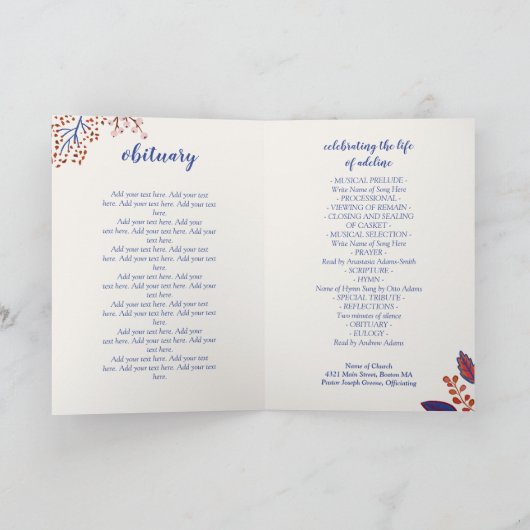 obituary
Add your text here. Add your text
here. Add your text here. Add your text
here.
Add your text here. Add your
text here. Add your text here. Add your
text here.
Add your text here. Add your
text here. Add your text here. Add your
text here.
Add your text here. Add your
text here. Add your text here. Add your
text here.
Add your text here. Add your
text here. Add your text here. Add your
text here.
Add your text here. Add your
text here. Add your text here. Add your
text here.
Add your text here. Add your text
here. Add your text here. Add your text
here.
celebrating the life
of adeline
- MUSICAL PRELUDE -
Write Name of Song Here
- PROCESSIONAL -
- VIEWING OF REMAIN -
- CLOSING AND SEALING
OF CASKET -
- MUSICAL SELECTION -
Write Name of Song Here
- PRAYER -
Read by Anastasia Adams-Smith
- SCRIPTURE -
- HYMN -
Name of Hymn Sung by Otto Adams
- SPECIAL TRIBUTE -
- REFLECTIONS -
Two minutes of silence
- OBITUARY -
- EULOGY -
Read by Andrew Adams
Name of Church
4321 Main Street, Boston MA
Pastor Joseph Greene, Officiating